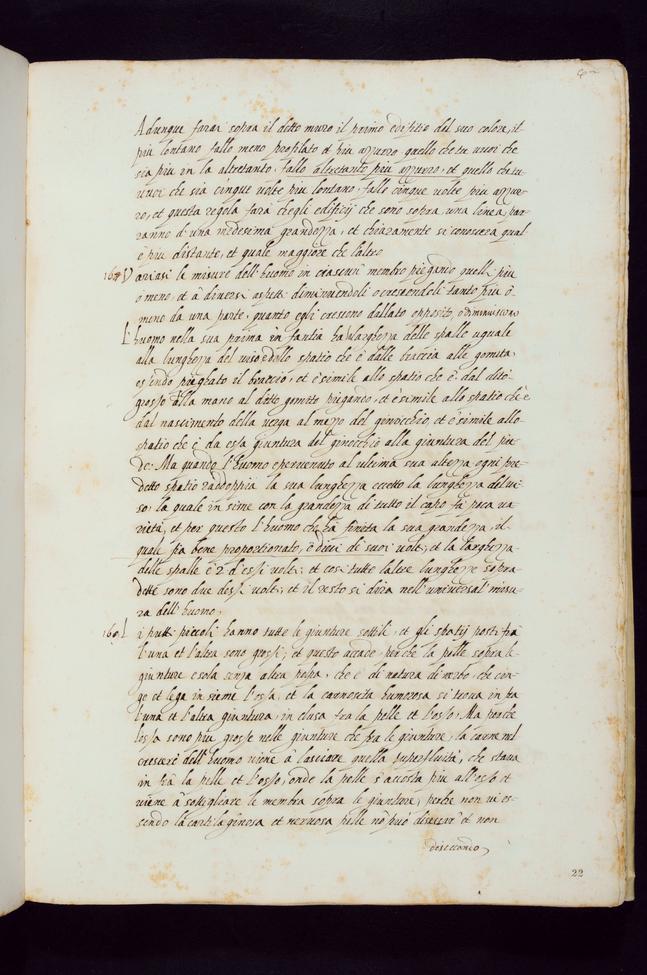 Adunque farai sopra il detto muro il primo edifitio del suo colore, il
piu lontano fallo meno profilato et piu azzurro quello che tu vuoi che
sia piu in la altretanto, fallo altretanto piu azzurro, et quello che tu
vuoi che sia cinque volte piu lontano, fallo cinque volte piu azzur-
ro, et questa regola fara che gli edificij che sono sopra una linea, par-
ranno d'una medesima grandezza, et chiaramente si conoscera qual
è piu distante, et quale maggiore che l'altro
167 Variasi le misure dell'huomo in ciascun membro piegando quelli piu
o meno, et à diversi aspetti diminuendoli o crescendoli tanto piu ò
meno da una parte, quanto egli crescono dal lato opposito, o diminuiscano
L'huomo nella sua prima infantia ha la larghezza delle spalle uguale
alla lunghezza del viso et allo spatio che è dalle braccia alle gomita,
essendo pieghato il braccio, et è simile allo spatio che è dal dito
grosso della mano al detto gomitto piegando, et è simile allo spatio che è
dal nascimento della verga al mezzo del ginocchio, et è simile allo
spatio che è da essa giuntura del ginocchio alla giuntura del pie-
de. Ma quando l'huomo è pervenuto al ultima sua altezza ogni pre-
detto spatio raddoppia la sua lunghezza eccetto la lunghezza del vi-
so, la quale in sime con la grandezza di tutto il capo fà poca va
rietà, et per questo l'huomo che ha finita la sua grandezza, il
quale sia bene proportionato, è dieci de suoi volti, et la larghezza
delle spalle è 2 d'essi volti: et cosi tutte l'altre lunghezze sopra-
dette sono due dessi volti, et il resto si dira nell'universal misu-
ra dell'huomo,
169 Li putti piccoli hanno tutte le giunture sottili, et gli spatij posti frà
l'una et l'altra sono grossi; et questo accade perche la pelle sopra le
giunture è sola senza altra polpa, che è di natura di nerbo, che cin-
ge et lega in sieme l'ossa, et la carnosità humorosa si trova in fra
l'una et l'altra giuntura, in clusa fra la pelle et l'osso, Ma perche
l'ossa sono piu grosse nelle giunture che fra le giunture, la carne nel
crescere dell'huomo viene à lasciare quella superfluità, che stava
in frà la pelle et l'osso, onde la pelle s'accosta piu all'osso et
viene à sottigliare le membra sopra le giunture, perche non vi es-
sendo la cartilaginosa et nervosa pelle nò può diseccar' et non
deseccando,
22